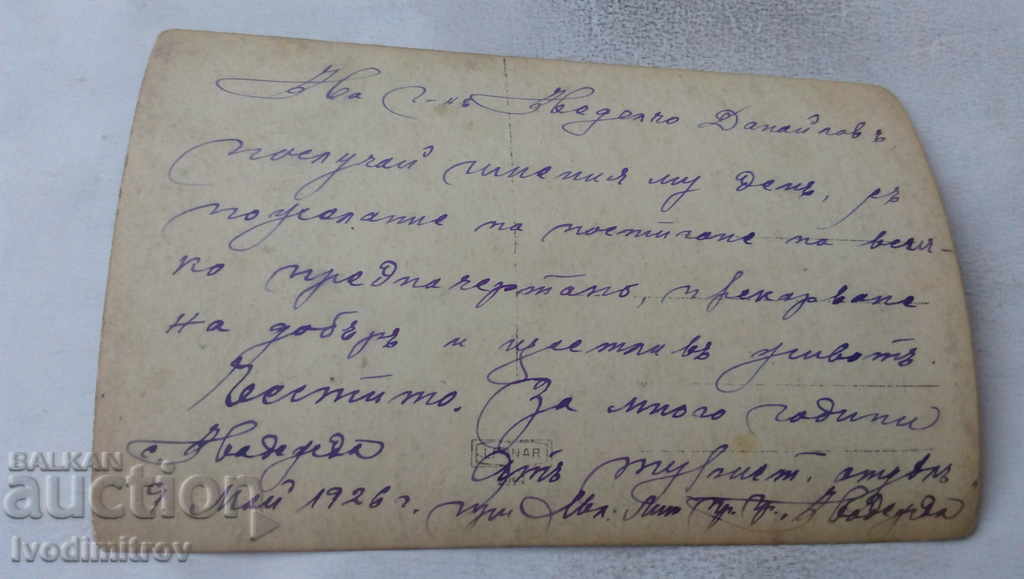 На г-нъ Неделчо Данаиловъ
послучай имения му день, съ
пожелание на постигане на всич-
ко предначертано, прекарване
на добъръ и щестливъ животъ.
Честито. За много години
с. Надежда
9 Май 1926 г.
Отъ турист.
при
Надежда
BALKAN
auction
Ivodimitrov